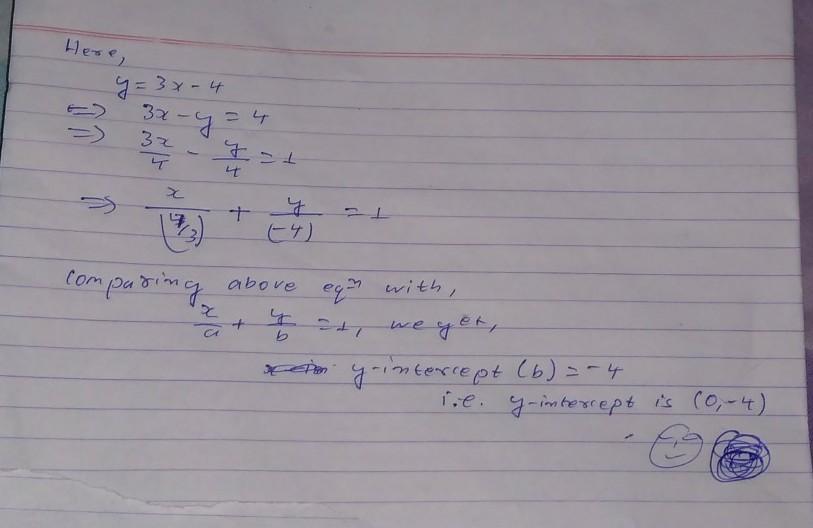 Here,
y = 3x - 4
⇔ 3x - y = 4
⇒ 3x/4 - y/4 = 1
⇒ x/(4/3) + y/(-4) = 1
Comparing above eqn with,
x/a + y/b = 1, we get,
y-intercept (b) = -4
i.e. y-intercept is (0,-4)